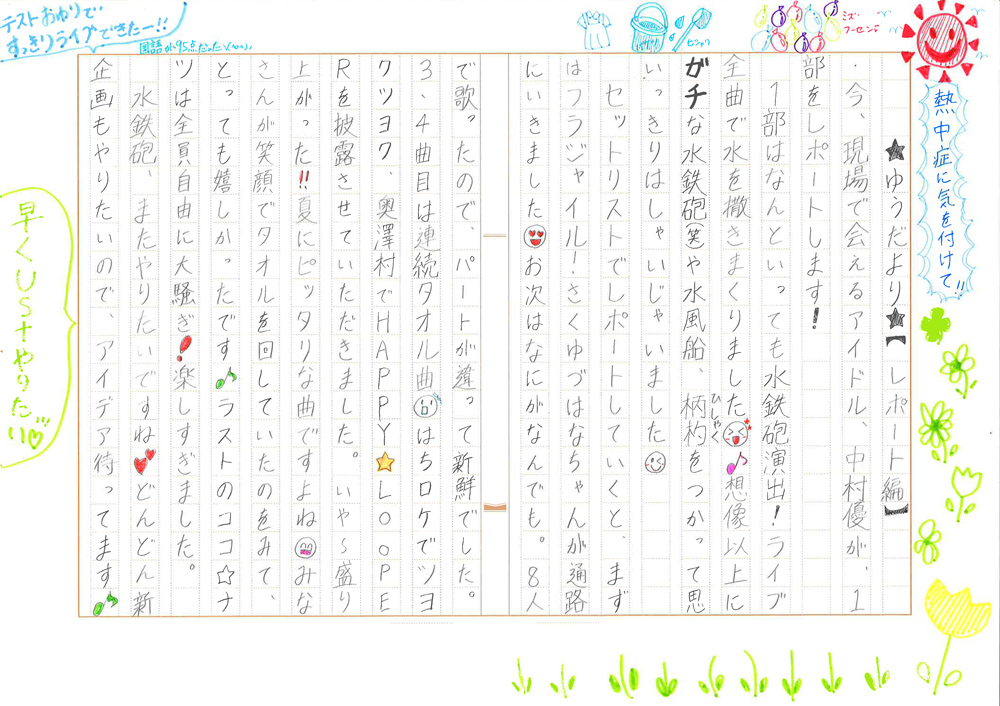 テストおわりで
すっきりライブできたー!!
国語が、95点だった\(^o^)/
ピシャッ
ミズ
フーセン
熱中症に気を付けて!!
★ゆうだより★【レポート編】
・今、現場で会えるアイドル、中村優が、1
部をレポートします!
1部はなんといっても水鉄砲演出!ライブ
全曲で水を撒きまくりました♪想像以上に
ガチな水鉄砲(笑)や水風船、柄杓をつかって思
ひしゃく
いっきりはしゃいじゃいました
セットリストでレポートしていくと、まず
はフラジャイル!さくゆづはなちゃんが通路
にいきましたお次はなにがなんでも。8人
で歌ったので、パートが違って新鮮でした。
3、4曲目は連続タオル曲はちロケでツヨ
クツヨク、奥澤村でHAPPY☆LOOPE
Rを披露させていただきました。いや〜盛り
上がった!!夏にピッタリな曲ですよねみな
さんが笑顔でタオルを回していたのをみて、
とっても嬉しかったです♪ラストのココ☆ナ
ツは全員自由に大騒ぎ!楽しすぎました。
水鉄砲、またやりたいですね♥どんどん新
企画もやりたいので、アイデア待ってます♪
早くUSTやりたい♡